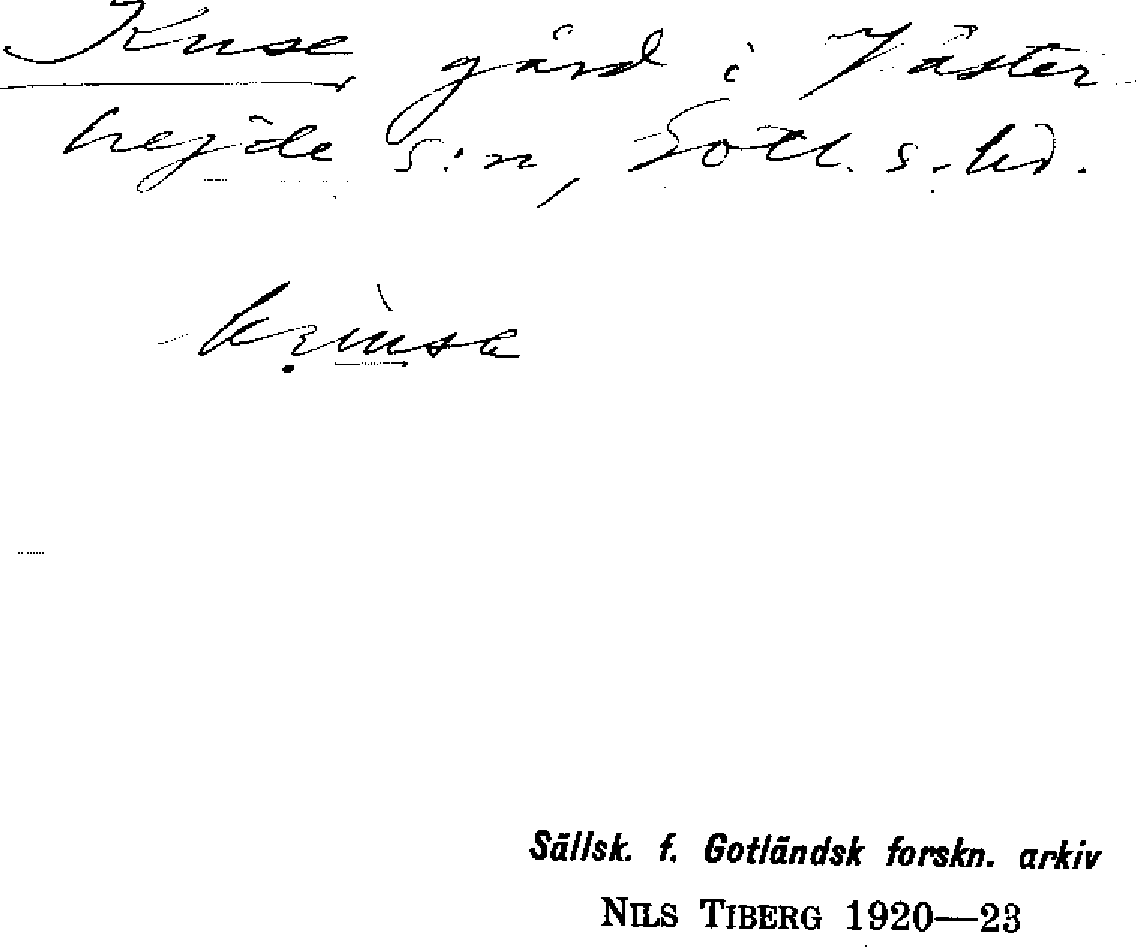 Kruse gård i Väster
hejde s:n, Gotl. s. hd.
Sällsk. f. Gotländsk forskn. arkiv
NILS TIBERG 1920—23